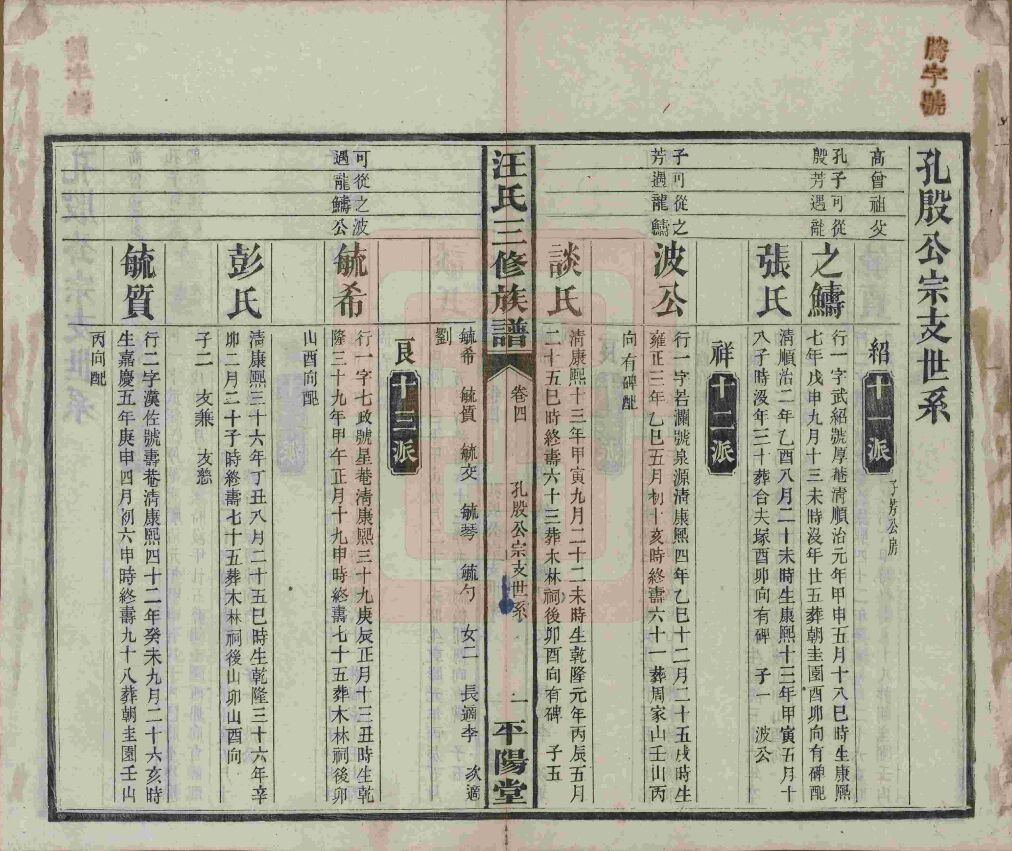 騰字號
孔殷公宗支世系
高曾祖父
孔子可從
殷芳遇龍
紹十一派
子芳公房
之鱅
行一字武紹號厚菴清順治元年甲申五月十八巳時生康熙
七年戊申九月十三未時沒年廿五葬朝圭園酉卯向有碑配
張氏
清順治二年乙酉八月二十未時生康熙十三年甲寅五月十
八子時沒年三十葬合夫塚酉卯向有碑 子一 波公
祥十二派
子可從之
芳遇龍鱅
波公
行一字若瀾號泉源清康熙四年乙巳十二月二十五戌時生
雍正三年乙巳五月初十亥時終壽六十一葬周家山壬山丙
向有碑配
談氏
清康熙十三年甲寅九月二十二未時生乾隆元年丙辰五月
二十五巳時終壽六十三葬木林祠後卯酉向有碑 子五
汪氏三修族譜
卷四
孔殷公宗支世系
一
平陽堂
毓希 毓質 毓交 毓琴 毓勺 女二 長適李 次適
劉
良十三派
可從之波
遇龍鱅公
毓希
行一字七政號星菴清康熙三十九庚辰正月十三丑時生乾
隆三十九年甲午正月十九申時終壽七十五葬木林祠後卯
山酉向配
彭氏
清康熙三十六年丁丑八月二十五巳時生乾隆三十六年辛
卯二月二十子時終壽七十五葬木林祠後山卯山酉向
子二 友乘 友慈
毓質
行二字漢佐號壽菴清康熙四十二年癸未九月二十六亥時
生嘉慶五年庚申四月初六申時終壽九十八葬朝圭園壬山
丙向配